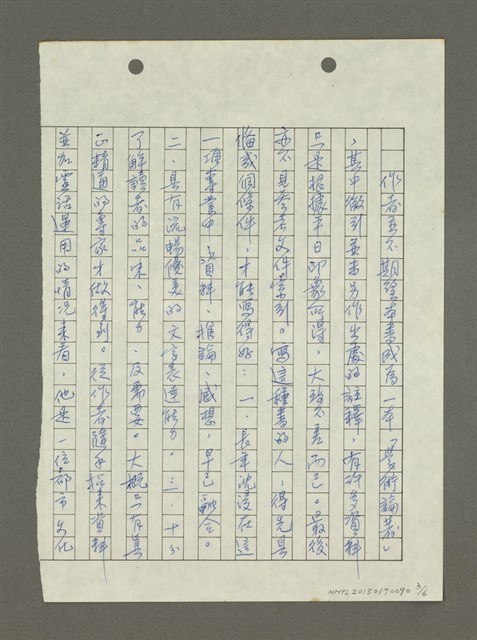 作者並不期望本書成為一本「學術論著」
，其中徵引並未另作出處的註釋，有許多資料
只是根據平日印象所得，大致不差而已。最後
亦不見參考文件索引。寫這種書的人，得先具
備或個條件，才能寫得好：一、長年沈浸在這
一項專業中，資料、推論、感想，早已融合。
二、具有流暢優美的文字表達能力。三、十分
了解讀者的品味、能力、及需要。大概只有真
正精通的專家才做得到。從作者隨手拈來資料
並加靈活運用的情況來看，他是一位都市文化
NMTL20150170090 3/6